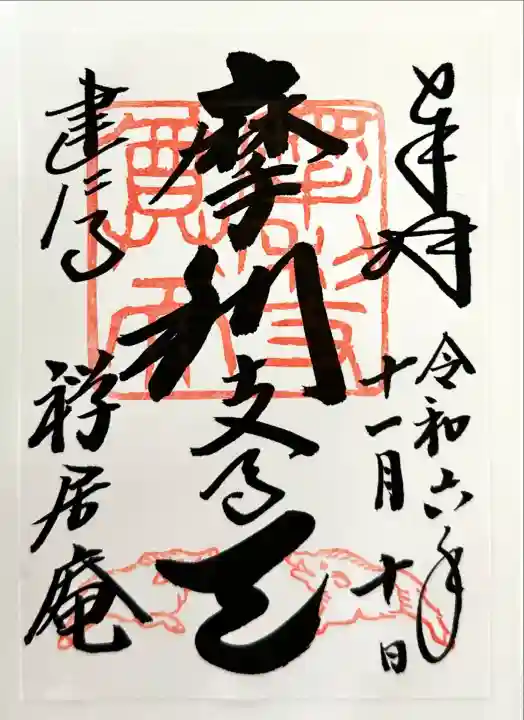 奉拝
令和六年
十一月十日
摩利支尊天
建仁寺
禅居庵